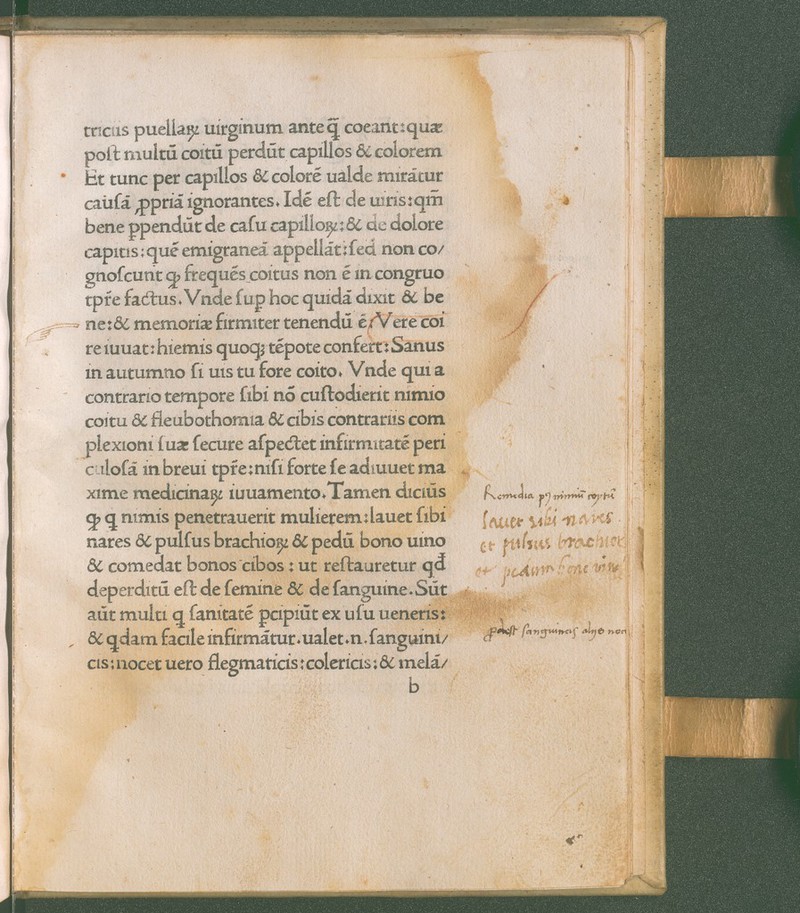 tricús puellaꝝ uirginum ante q̃ coeant:quæ
poſt multũ coitũ perdũt capillos & colorem
Et tunc per capillos & colorẽ ualde mirãtur
cauſã ꝓpriã ignorantes. Idẽ eſt de uiris:qm̃
bene ꝑpendũt de caſu capilloꝝ:& de dolore
capitis:quẽ emigraneã appellãt:ſed non co/
gnoſcunt ꝙ frequẽs coitus non ẽ in congruo
tpr̃e factus. Vnde ſup hoc quidã dixit & be
ne:& memoriæ firmiter tenendũ ẽ: Vere coi
re iuuat:hiemis quoqꝫ tẽpote confert: Sanus
in autumno ſi uis tu fore coito. Vnde qui a
contrario tempore ſibi nõ cuſtodierit nimio
coitu & fleubothomia & cibis contrariis com
plexioni ſuæ ſecure aſpectet infirmitatẽ peri
culoſã in breui tpr̃e:niſi forte ſe adiuuet ma
xime medicinaꝝ iuuamento. Tamen diciũs
ꝙ q nimis penetrauerit mulierem:lauet ſibi
nares & pulſus brachioꝝ & pedũ bono uino
& comedat bonos cibos : ut reſtauretur qd̃
deperditũ eſt de ſemine & de ſanguine. Sũt
aũt multi q ſanitatẽ ꝑcipiũt ex uſu ueneris:
& qdam facile infirmãtur. ualet.n.ſanguini/
cis:nocet uero flegmaticis:colericis:& melã/
b
Remedia nimiũ coytũ
lauet sibi nares
et pulsus brachior
et pedum bono vino
ꝓdest sanguineis